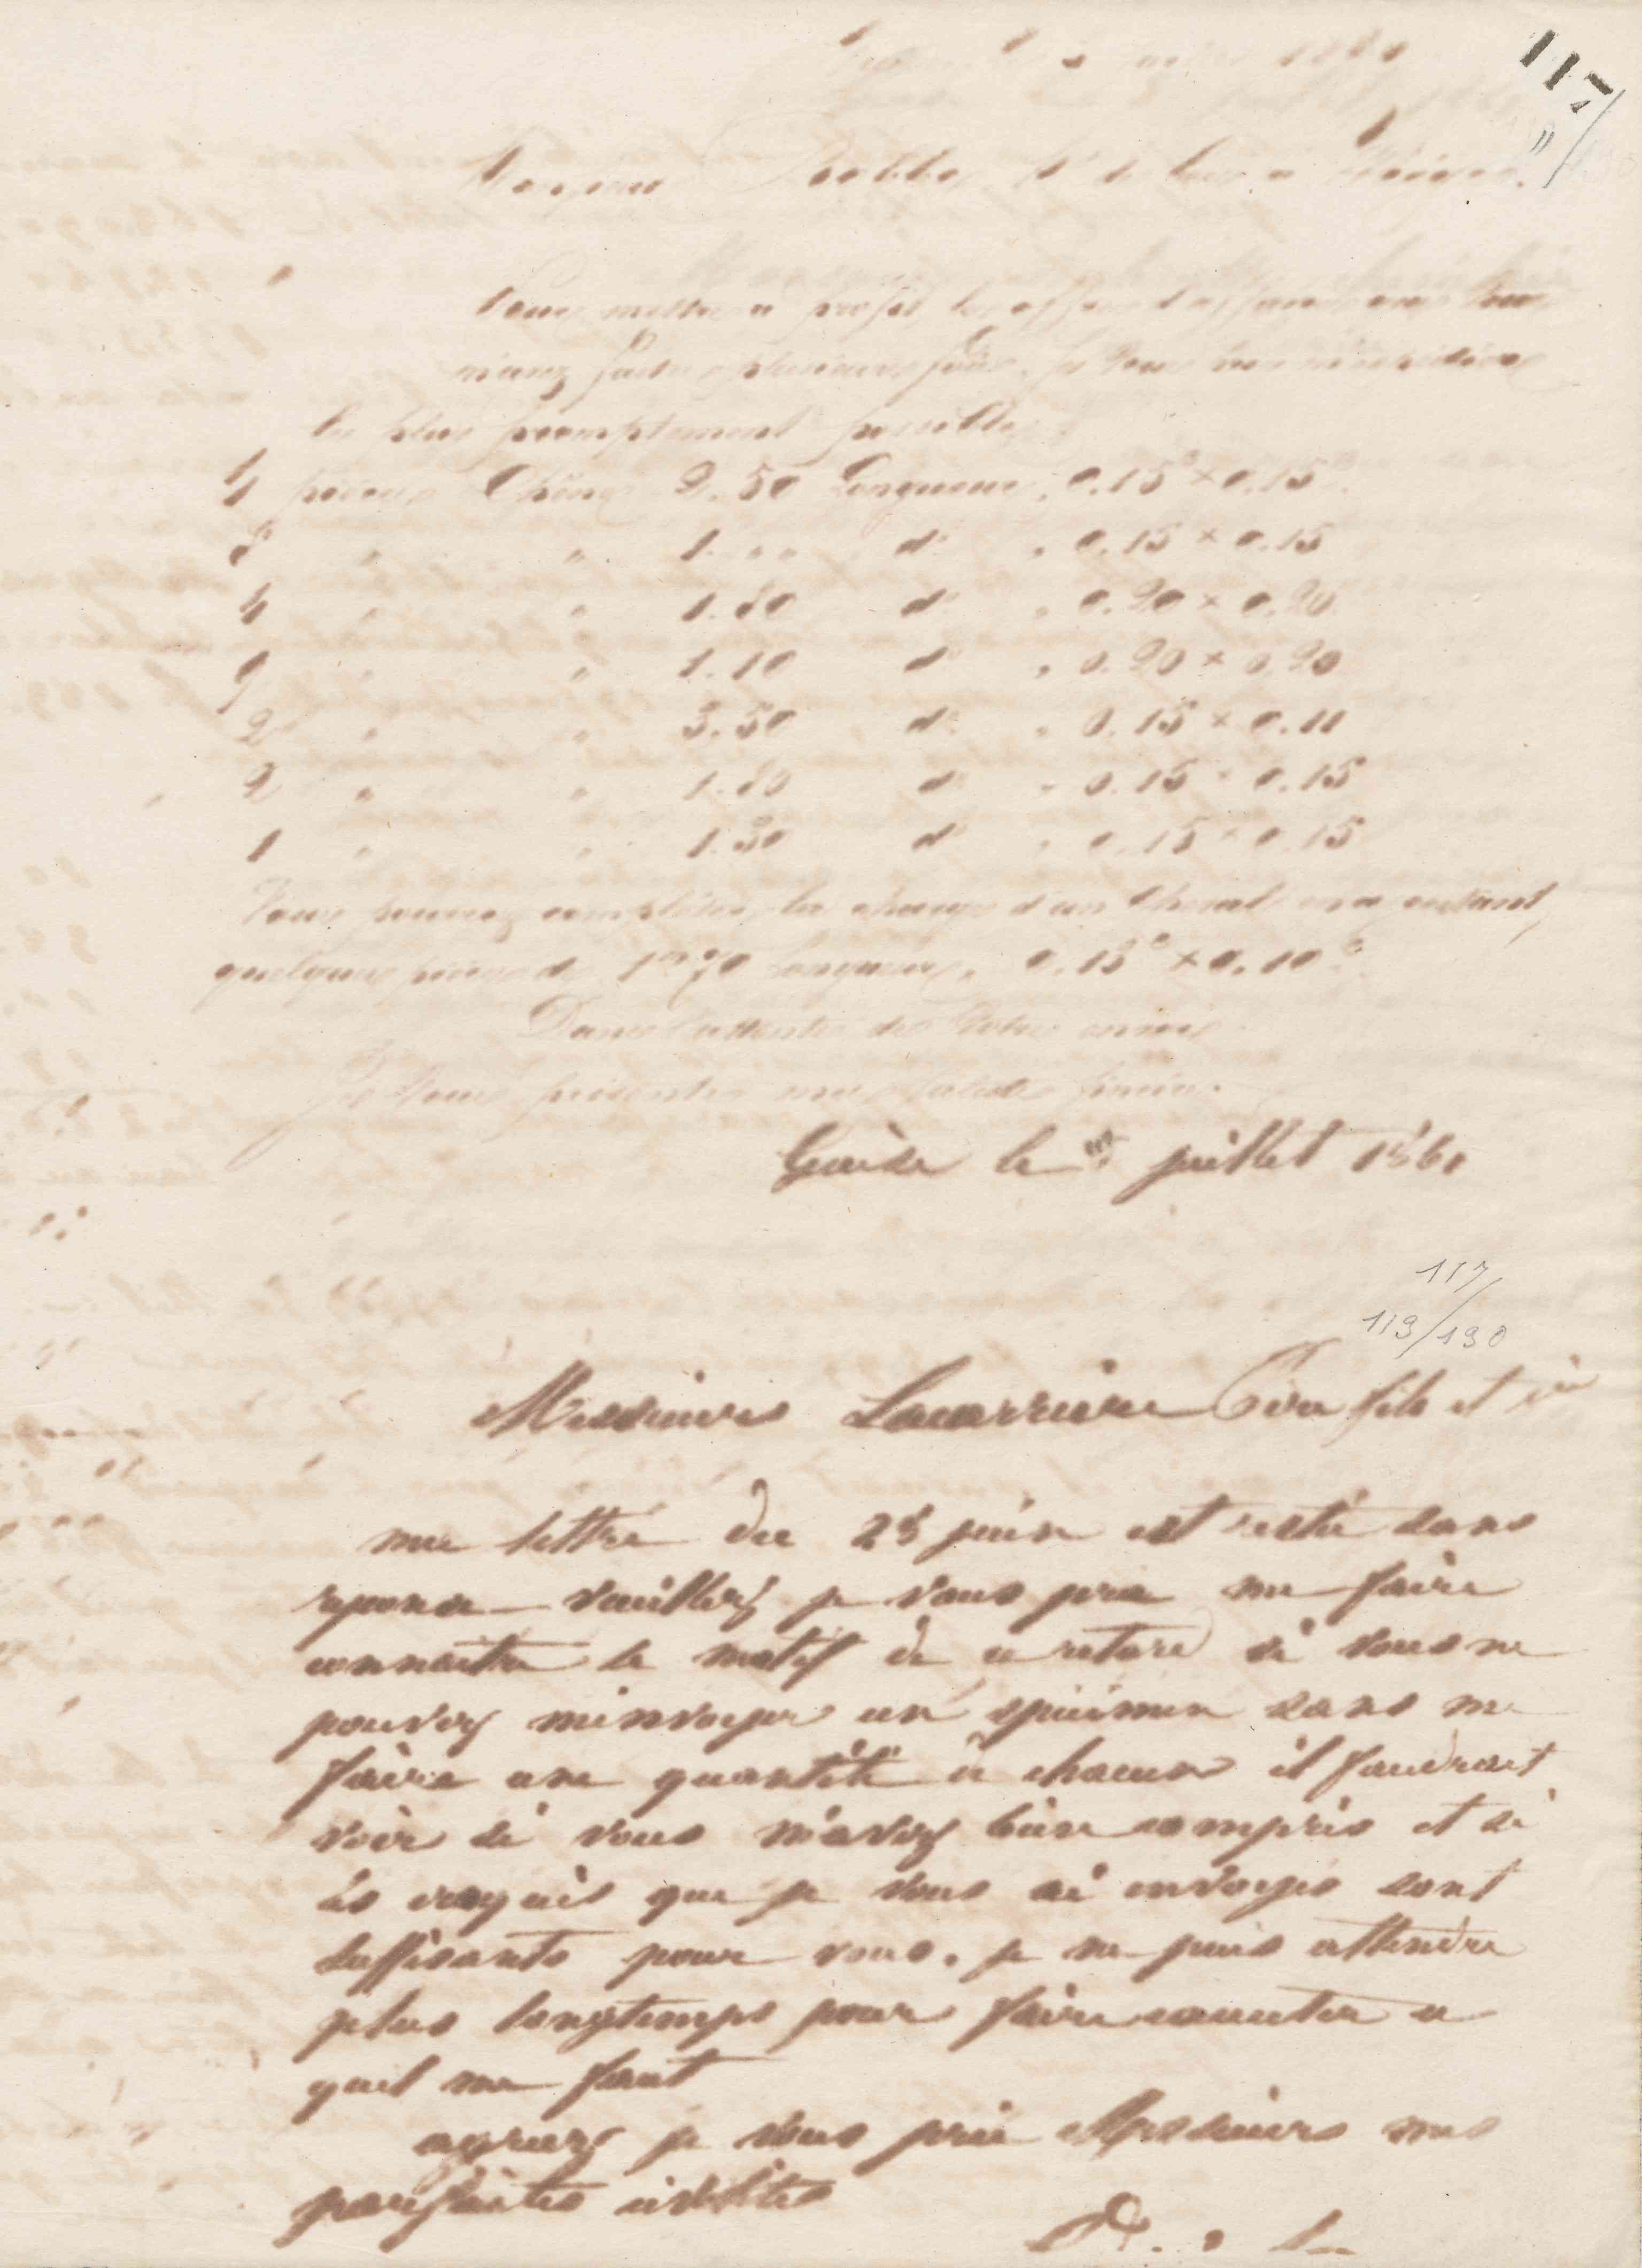 117
"
Monsieur
Vous mettre à profit les
faites plusieurs fois. Je vous
le plus promptement possible
4 pièces Chêne 2.50 Longueur, 0.15c × 0.15c
8 " " 1. " " do " 0.15 × 0.15
4 " " 1.80 do " 0.20 × 0.20
9 " " 1.10 do " 0.20 × 0.20
2 " " 3.50 do " 0.15 × 0.11
2 " " 1.80 do " 0.15 × 0.15
1 " " 1.30 do " 0.15 × 0.15
Vous pourrez compléter la charge d'un cheval en ajoutant
quelques pièces de 1m70 Longueur, 0.15c × 0.10c
Dans l'attente de votre envoi
Je vous présente mes salutations
Guise le juillet 1861
117/
119/130
Messieurs Lacarriere Père fils et Cie
ma lettre du 25 juin est resté sans
reponse veuillez je vous prie me faire
connaitre le motif de ce retard si vous ne
pouvez m'envoyer un spécimen sans me
faire une quantité de chacun il faudrait
voir si vous m'avez bien compris et si
les croquis que je vous ai envoyés sont
suffisants pour vous. je ne puis attendre
plus longtemps pour faire executer ce
quil me faut
agreez je vous prie Messieurs mes
parfaites civilités